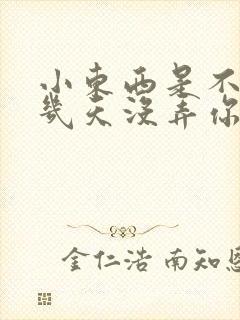 小东西是不
几天没弄你
金仁浩 南知恩